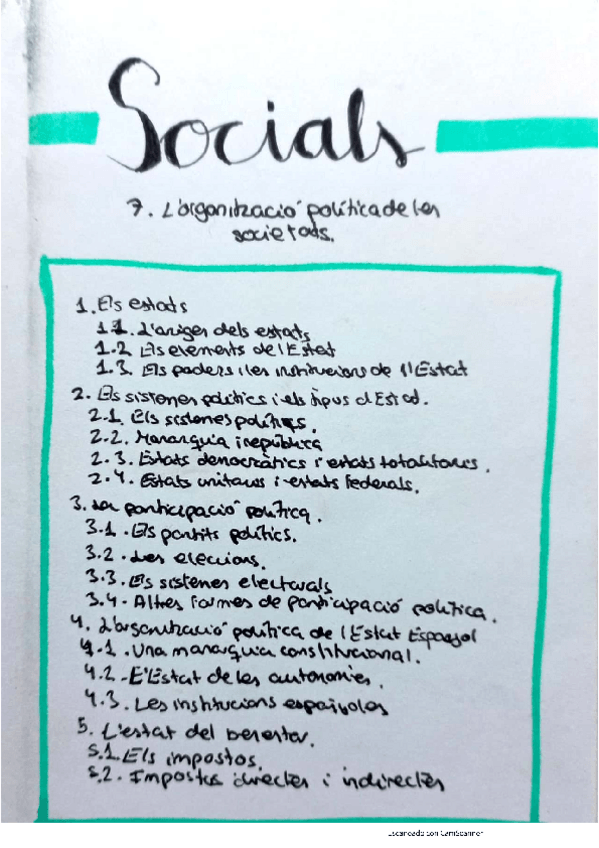 Socials
7. L'organització política de les
societats.
1. Els estats
1.1. L'origen dels estats
1.2 Els elements de l'Estat
1.3. Els poders i les institucions de l'Estat
2. Els sistemes polítics i els tipus d'Estat.
2.1. Els sistemes polítics.
2.2. Monarquia i república
2.3. Estats democràtics i estats totalitaris.
2.4. Estats unitaris i estats federals.
3. La participació política.
3.1. Els partits polítics.
3.2. Les eleccions.
3.3. Els sistemes electorals
3.4. Altres formes de participació política.
4. L'organització política de l'Estat Espanyol
4.1. Una monarquia constitucional.
4.2. E'Estat de les autonomies.
4.3. Les institucions espanyoles
5. L'estat del benestar.
5.1. Els impostos.
5.2. Impostos directes i indirectes
Escaneado con CamScanner